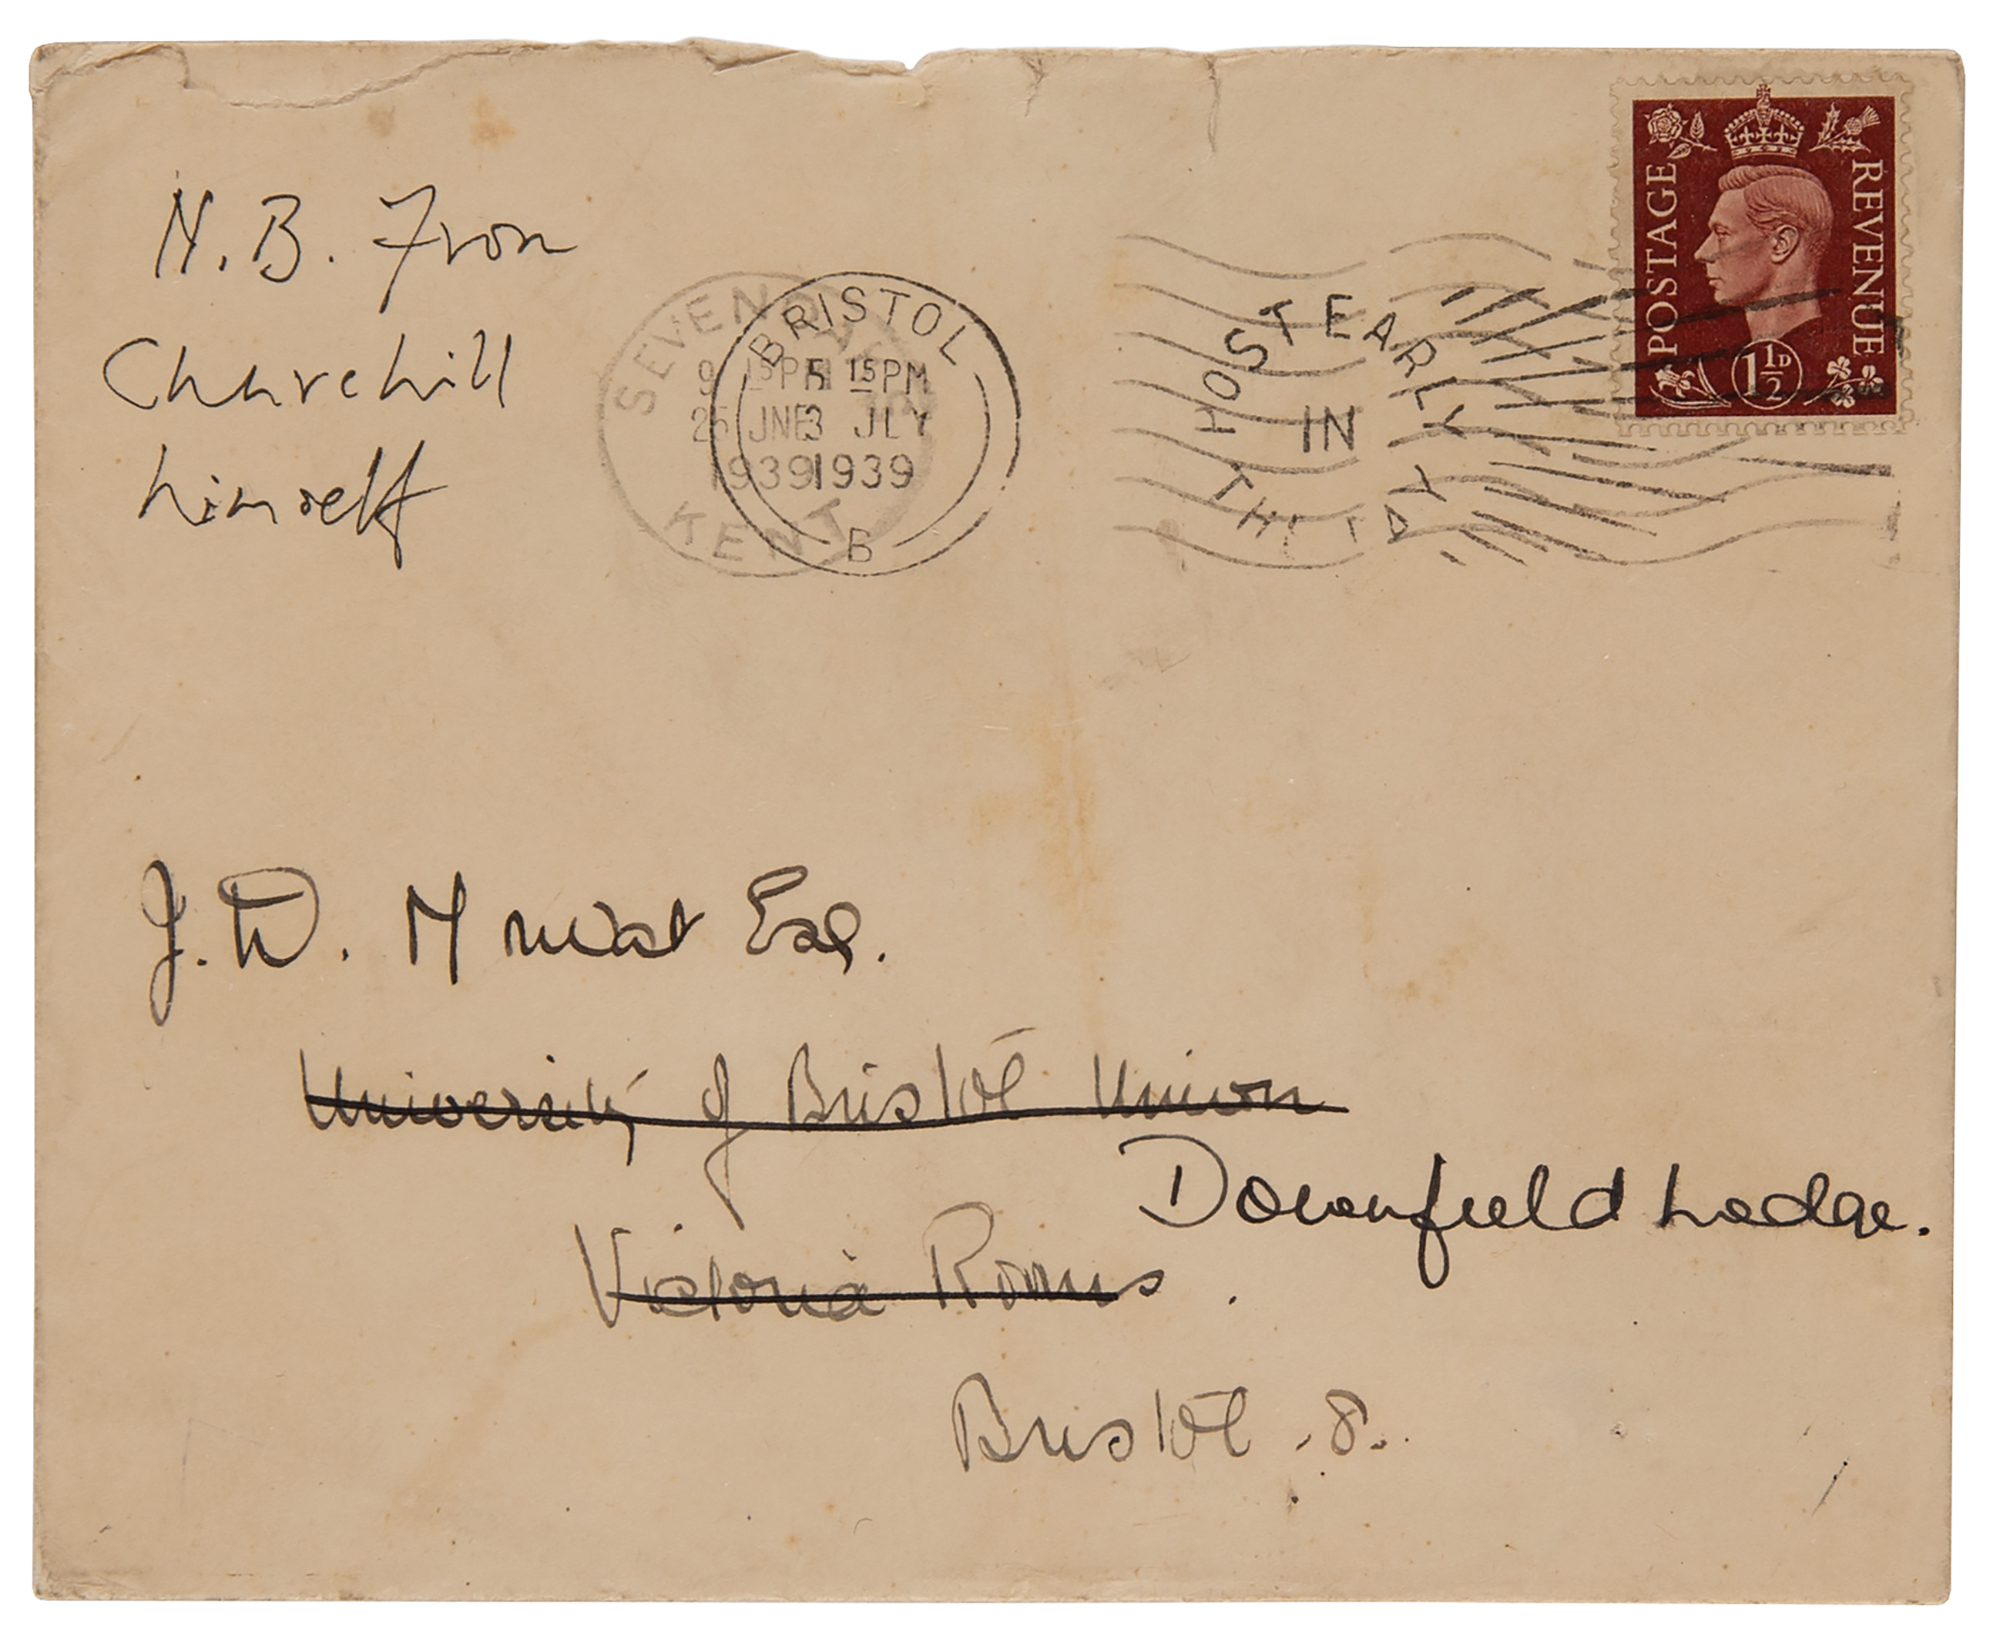 N.B. From
Churchill
himself
SEVENOAKS
9 15 PM
25 JNE
1939
KENT
BRISTOL
5 15 PM
3 JLY
1939
B
POST EARLY
IN
THE DAY
POSTAGE
REVENUE
1½D
J.W. M Esq.
University of Bristol Union
Downfield Lodge.
Victoria Rooms.
Bristol .8.